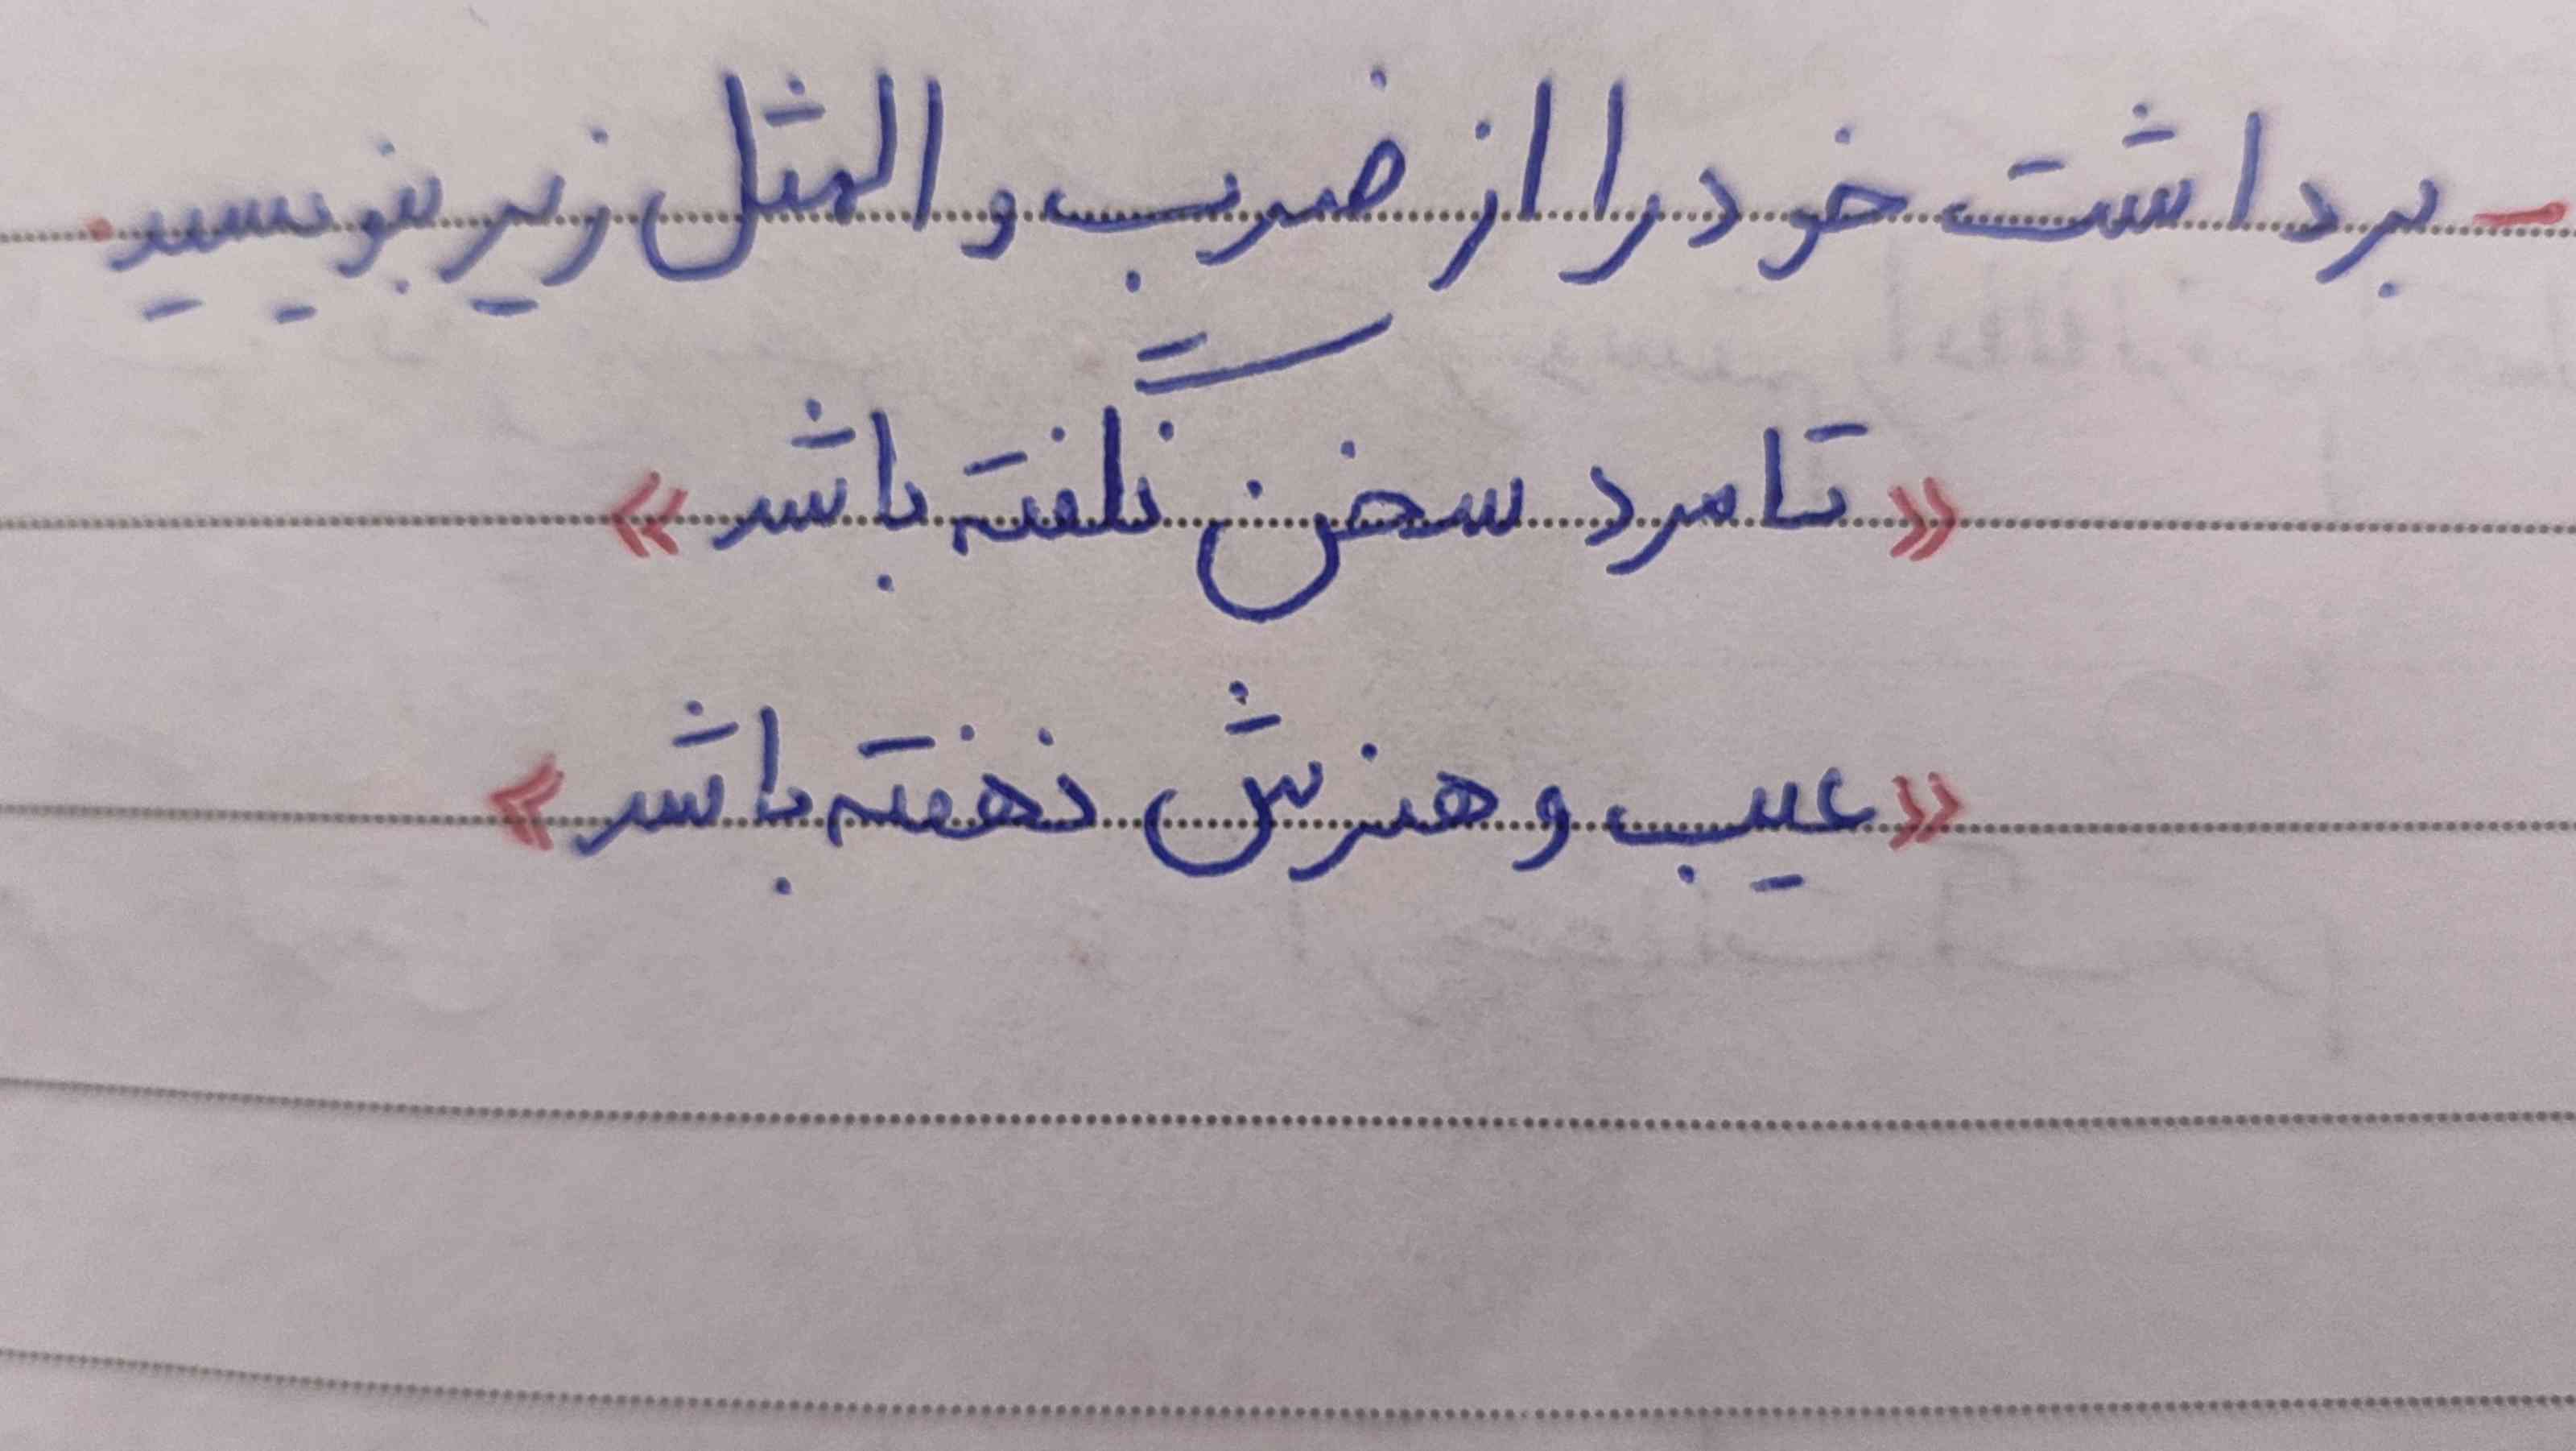 - برداشت خود را از ضرب و المثل زیر بنویسید.
« تا مرد سخن نگفته باشد »
« عیب و هنرش نهفته باشد »